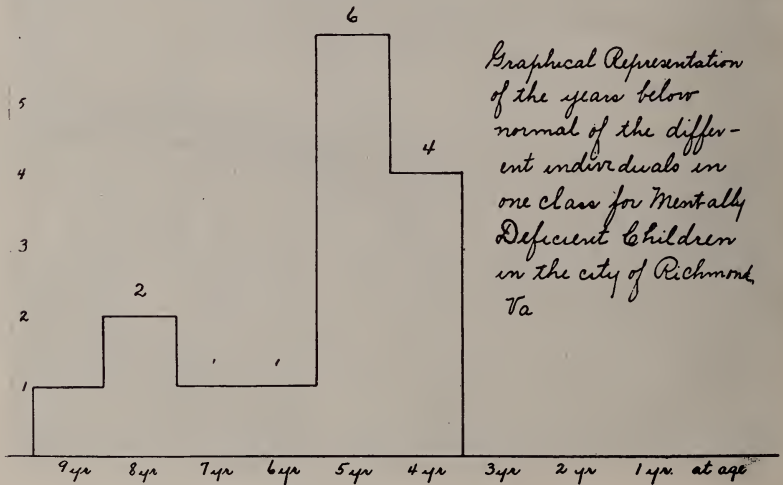 6
Graphical Representation
of the years below
normal of the differ-
ent individuals in
one class for Mentally
Deficient Children
in the city of Richmond,
Va
5
4
4
3
2
2
1
1 1
9 yr 8 yr 7 yr 6 yr 5 yr 4 yr 3 yr 2 yr 1 yr. at age